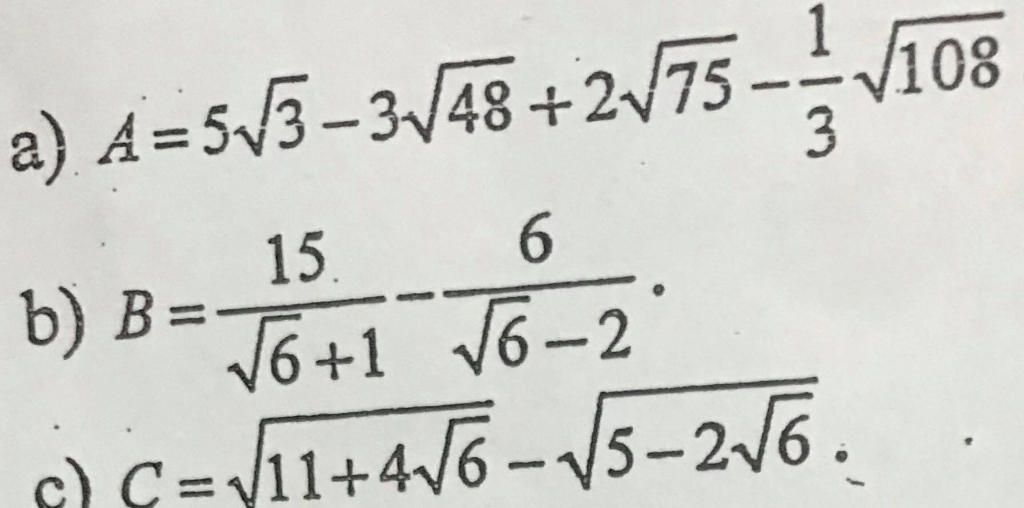 a) A = 5√3 − 3√48 + 2√75 − 1/3 √108
b) B = 15/(√6+1) − 6/(√6−2).
c) C = √(11+4√6) − √(5−2√6).